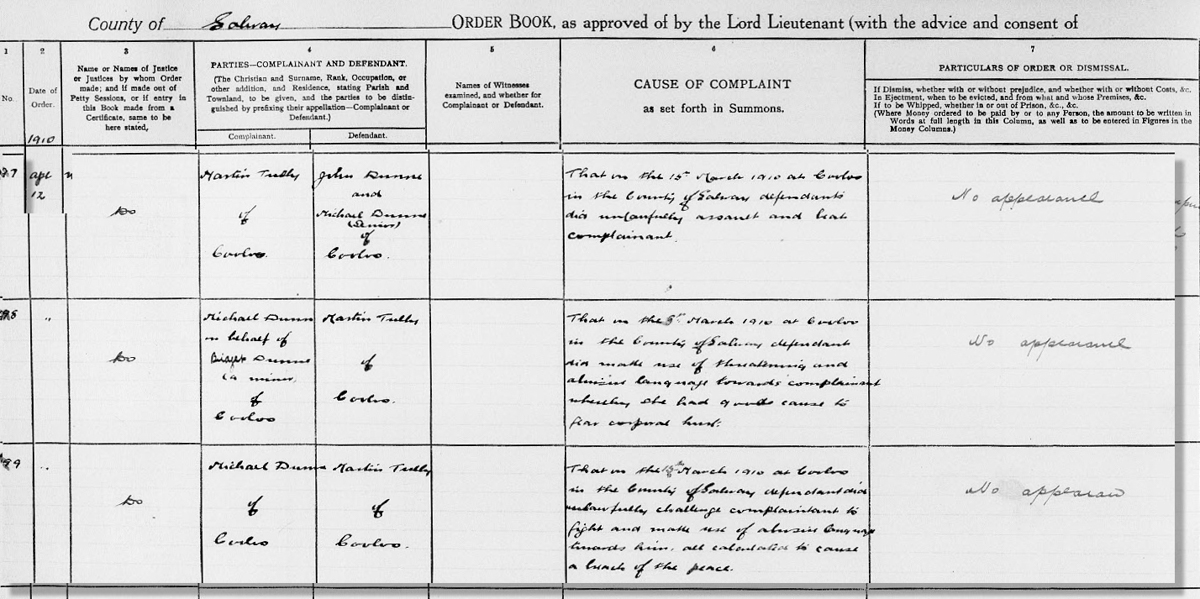 County of Galway ORDER BOOK, as approved of by the Lord Lieutenant (with the advice and consent of
1
2
3
4
5
6
7
No.
Date of
Order.
1910
Name or Names of Justice
or Justices by whom Order
made; and if made out of
Petty Sessions, or if entry in
this Book made from a
Certificate, same to be
here stated,
PARTIES—COMPLAINANT AND DEFENDANT.
(The Christian and Surname, Rank, Occupation, or
other addition, and Residence, stating Parish and
Townland, to be given, and the parties to be distin-
guished by prefixing their appellation—Complainant or
Defendant.)
Complainant.
Defendant.
Names of Witnesses
examined, and whether for
Complainant or Defendant.
CAUSE OF COMPLAINT
as set forth in Summons.
PARTICULARS OF ORDER OR DISMISSAL.
If Dismiss, whether with or without prejudice, and whether with or without Costs, &c.
In Ejectment, when to be evicted, and from what and whose Premises, &c.
If to be Whipped, whether in or out of Prison, &c., &c.
(Where Money ordered to be paid by or to any Person, the amount to be written in
Words at full length in this Column, as well as to be entered in Figures in the
Money Columns.)
97
Apl
12
Do
Martin Tully
of
Cooloo.
John Dunne
and
Michael Dunne
(Senior)
of
Cooloo.
That on the 15th March 1910 at Cooloo
in the County of Galway defendants
did unlawfully assault and beat
complainant.
No appearance
98
"
Do
Michael Dunne
on behalf of
Bridget Dunne
(a minor)
of
Cooloo
Martin Tully
of
Cooloo.
That on the March 1910 at Cooloo
in the County of Galway defendant
did make use of threatening and
abusive language towards complainant
whereby she had goode cause to
fear corporal hurt.
No appearance
99
"
Do
Michael Dunne
of
Cooloo
Martin Tully
of
Cooloo.
That on the 15th March 1910 at Cooloo
in the County of Galway defendant did
unlawfully challenge complaintant to
fight and make use of abusive language
towards him, all calculated to cause
a breach of the peace.
No appearan